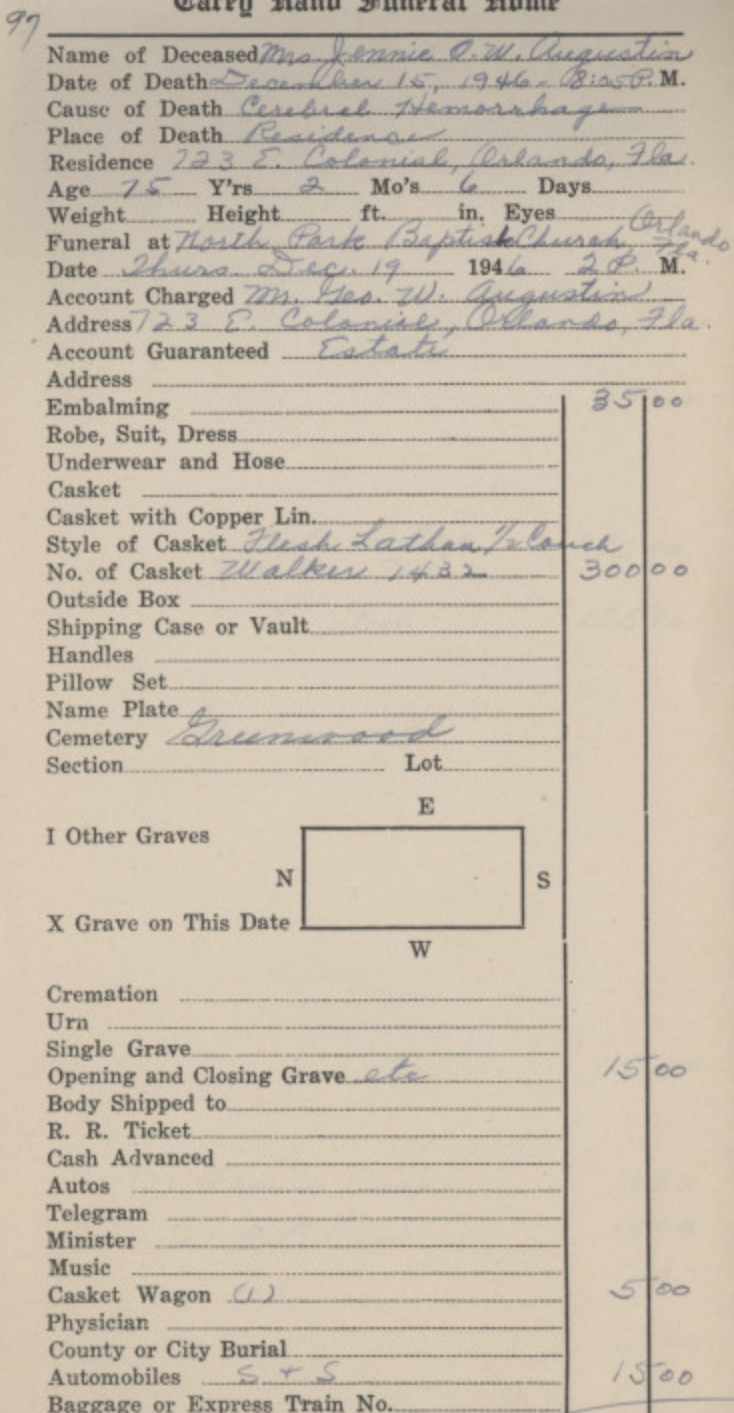 Carey Hand Funeral Home
97
Name of Deceased Mrs. Jennie O. W. Augustin
Date of Death December 15, 1946 - 8:05 P. M.
Cause of Death Cerebral Hemorrhage
Place of Death Residence
Residence 723 E. Colonial, Orlando, Fla.
Age 75 Y'rs 2 Mo's 6 Days
Weight Height ft. in. Eyes
Funeral at North Park Baptist Church, Orlando Fla.
Date Thurs. Dec. 19 1946 2 P. M.
Account Charged Mr. Geo. W. Augustin
Address 723 E. Colonial, Orlando, Fla.
Account Guaranteed Estate
Address
Embalming 35 00
Robe, Suit, Dress
Underwear and Hose
Casket
Casket with Copper Lin.
Style of Casket Flesh 1/2 Couch
No. of Casket Walker 1432 300 00
Outside Box
Shipping Case or Vault
Handles
Pillow Set
Name Plate
Cemetery Greenwood
Section Lot
E
I Other Graves
N S
X Grave on This Date
W
Cremation
Urn
Single Grave
Opening and Closing Grave etc 15 00
Body Shipped to
R. R. Ticket
Cash Advanced
Autos
Telegram
Minister
Music
Casket Wagon (1) 5 00
Physician
County or City Burial
Automobiles S + S 15 00
Baggage or Express Train No.